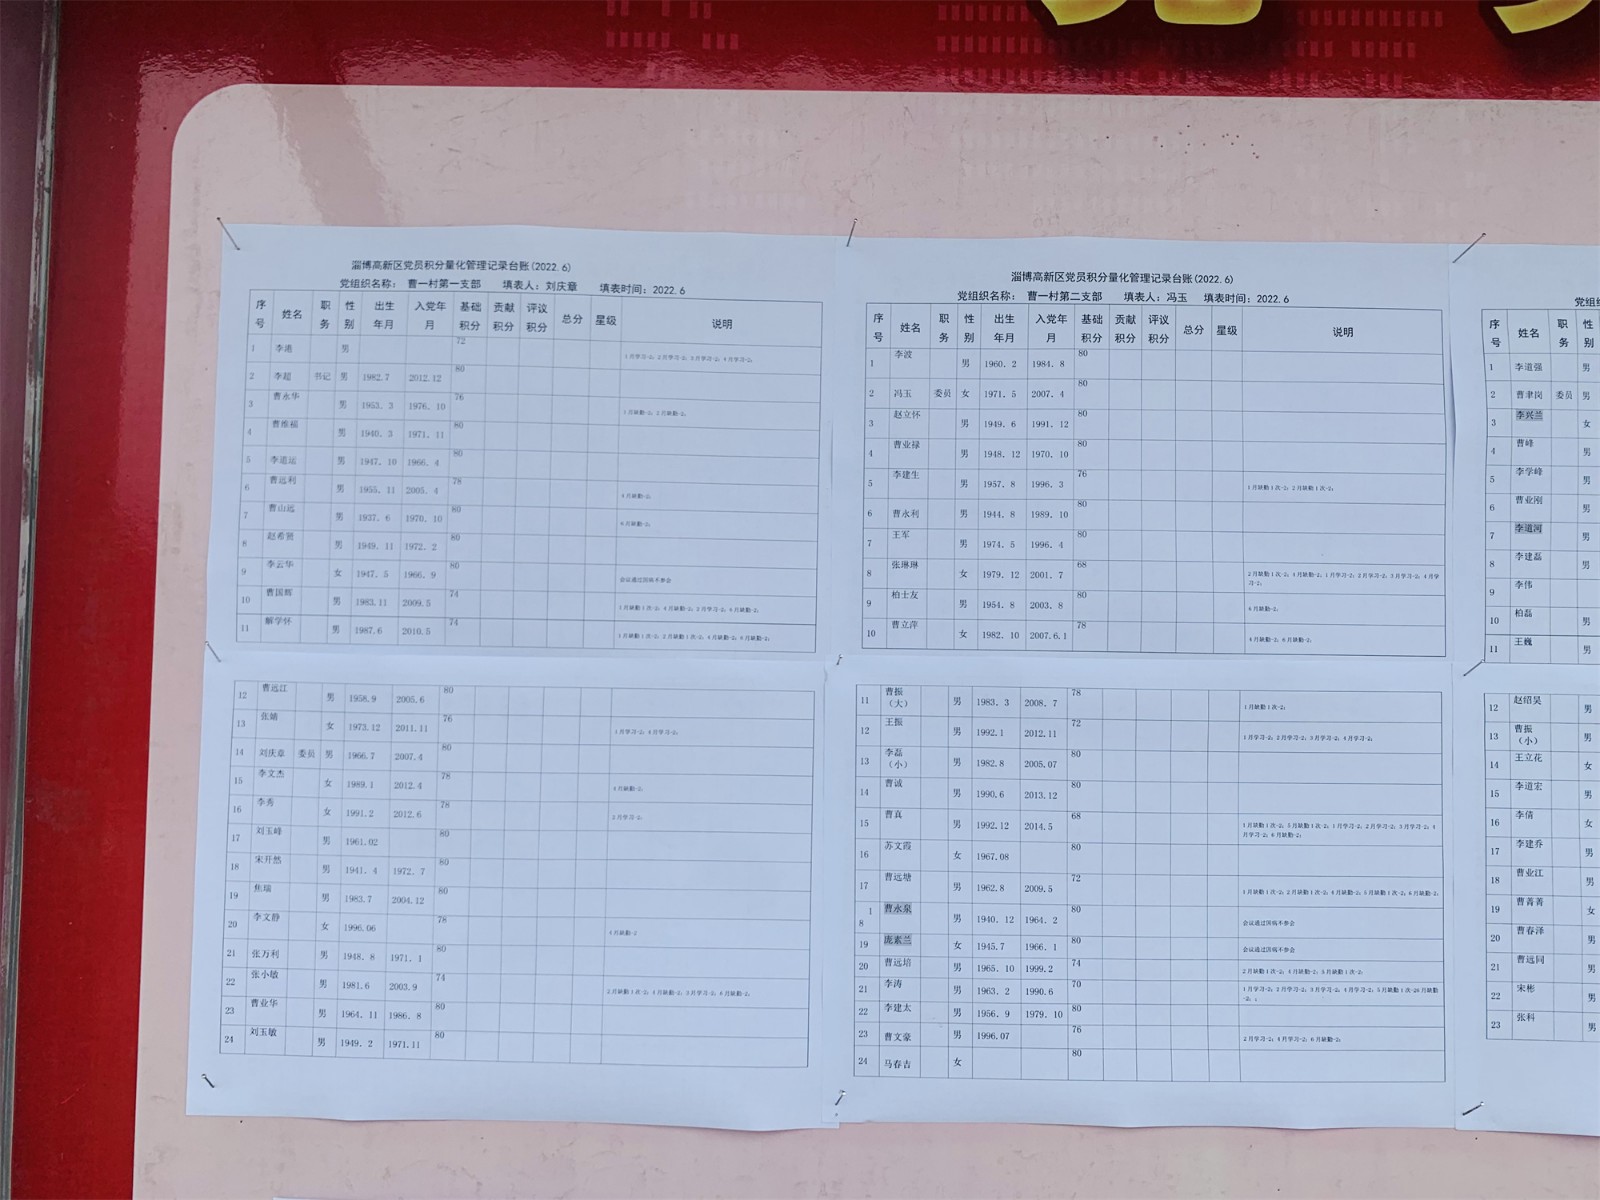 淄博高新区党员积分量化管理记录台账(2022.6)
党组织名称： 曹一村第一支部 填表人：刘庆章 填表时间：2022.6
序号 姓名 职务 性别 出生年月 入党年月 基础积分 贡献积分 评议积分 总分 星级 说明
1 李港 男 72 1月学习-2；2月学习-2；3月学习-2；4月学习-2；
2 李超 书记 男 1982.7 2012.12 80
3 曹永华 男 1953.3 1976.10 76 1月缺勤-2；2月缺勤-2；
4 曹维福 男 1940.3 1971.11 80
5 李道运 男 1947.10 1966.4 80
6 曹远利 男 1955.11 2005.4 78 4月缺勤-2；
7 曹山远 男 1937.6 1970.10 80 6月缺勤-2；
8 赵希贤 男 1949.11 1972.2 80
9 李云华 女 1947.5 1966.9 80 会议通过因病不参会
10 曹国辉 男 1983.11 2009.5 74 1月缺勤1次-2；4月缺勤-2；2月学习-2；6月缺勤-2；
11 解学怀 男 1987.6 2010.5 74 1月缺勤1次-2；2月缺勤1次-2；4月缺勤-2；6月缺勤-2；
12 曹远江 男 1958.9 2005.6 80
13 张婧 女 1973.12 2011.11 76 1月学习-2；4月学习-2；
14 刘庆章 委员 男 1966.7 2007.4 80
15 李文杰 女 1989.1 2012.4 78 4月缺勤-2；
16 李秀 女 1991.2 2012.6 78 2月学习-2；
17 刘玉峰 男 1961.02 80
18 宋开然 男 1941.4 1972.7 80
19 焦瑞 男 1983.7 2004.12 80
20 李文静 女 1996.06 78 4月缺勤-2
21 张万利 男 1948.8 1971.1 80
22 张小敏 男 1981.6 2003.9 74 2月缺勤1次-2；4月缺勤-2；3月学习-2；6月缺勤-2；
23 曹业华 男 1964.11 1986.8 80
24 刘玉敏 男 1949.2 1971.11 80
淄博高新区党员积分量化管理记录台账(2022.6)
党组织名称： 曹一村第二支部 填表人：冯玉 填表时间：2022.6
序号 姓名 职务 性别 出生年月 入党年月 基础积分 贡献积分 评议积分 总分 星级 说明
1 李波 男 1960.2 1984.8 80
2 冯玉 委员 女 1971.5 2007.4 80
3 赵立怀 男 1949.6 1991.12 80
4 曹业禄 男 1948.12 1970.10 80
5 李建生 男 1957.8 1996.3 76 1月缺勤1次-2；2月缺勤1次-2；
6 曹永利 男 1944.8 1989.10 80
7 王军 男 1974.5 1996.4 80
8 张琳琳 女 1979.12 2001.7 68 2月缺勤1次-2；4月缺勤-2；1月学习-2；2月学习-2；3月学习-2；4月学习-2；
9 柏士友 男 1954.8 2003.8 80 6月缺勤-2；
10 曹立萍 女 1982.10 2007.6.1 78 4月缺勤-2；6月缺勤-2；
11 曹振（大） 男 1983.3 2008.7 78 1月缺勤1次-2；
12 王振 男 1992.1 2012.11 72 1月学习-2；2月学习-2；3月学习-2；4月学习-2；
13 李磊（小） 男 1982.8 2005.07 80
14 曹诚 男 1990.6 2013.12 80
15 曹真 男 1992.12 2014.5 68 1月缺勤1次-2；5月缺勤1次-2；1月学习-2；2月学习-2；3月学习-2；4月学习-2；6月缺勤-2；
16 苏文霞 女 1967.08 80
17 曹远塘 男 1962.8 2009.5 72 1月缺勤1次-2；2月缺勤1次-2；4月缺勤-2；5月缺勤1次-2；6月缺勤-2；
18 曹永泉 男 1940.12 1964.2 80 会议通过因病不参会
19 庞素兰 女 1945.7 1966.1 80 会议通过因病不参会
20 曹远培 男 1965.10 1999.2 74 2月缺勤1次-2；4月缺勤-2；5月缺勤1次-2；
21 李涛 男 1963.2 1990.6 70 1月学习-2；2月学习-2；3月学习-2；4月学习-2；5月缺勤1次-26月缺勤-2；；
22 李建太 男 1956.9 1979.10 80
23 曹文豪 男 1996.07 76 2月学习-2；4月学习-2；6月缺勤-2；
24 马春吉 女 80
党组织
序号 姓名 职务 性别
1 李道强 男
2 曹聿岗 委员 男
3 李兴兰 女
4 曹峰 男
5 李学峰 男
6 曹业刚 男
7 李道河 男
8 李建磊 男
9 李伟
10 柏磊 男
11 王巍 男
12 赵绍昊 男
13 曹振（小） 男
14 王立花 女
15 李道宏 男
16 李倩 女
17 李建乔 男
18 曹业江 男
19 曹菁菁 女
20 曹春泽 男
21 曹远同 男
22 宋彬 男
23 张科 男